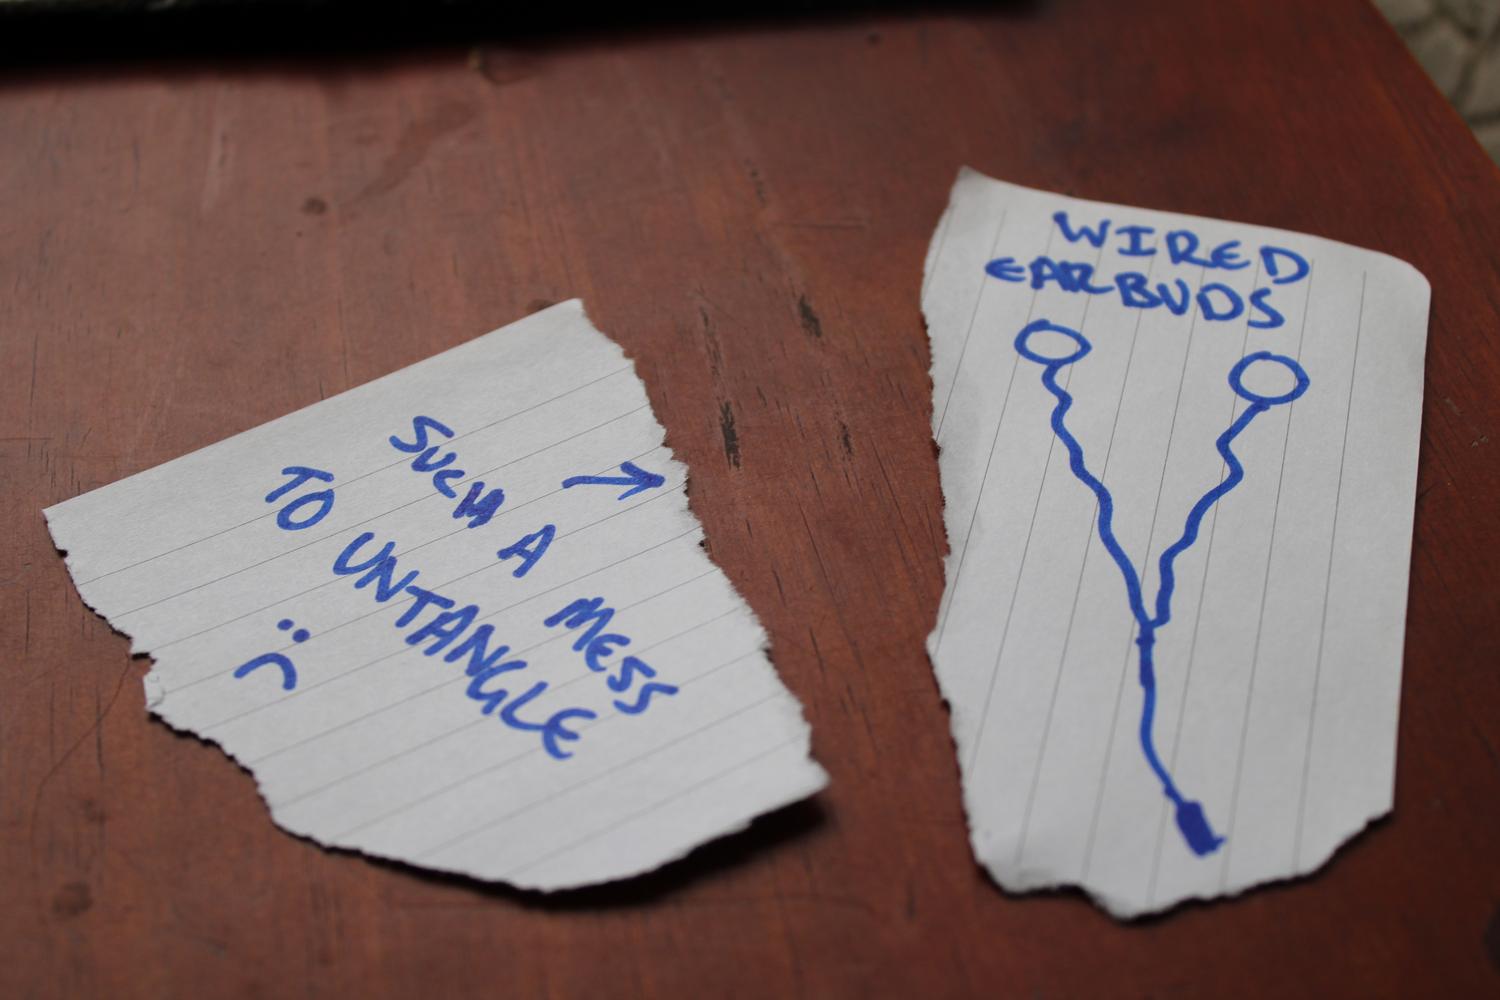 SUCH A MESS
TO UNTANGLE
WIRED
EARBUDS